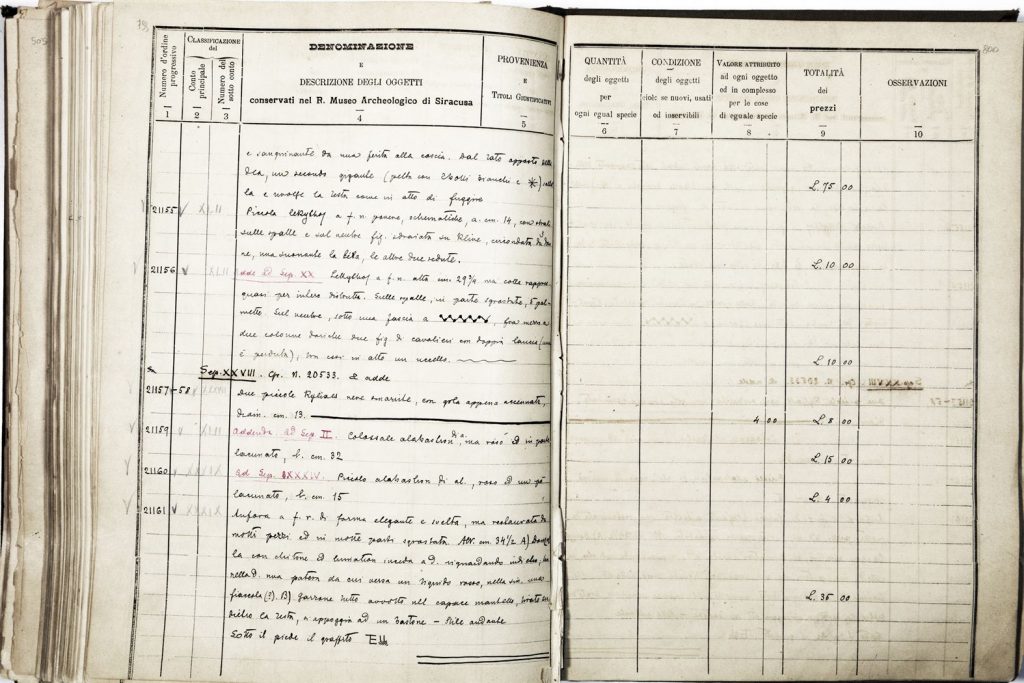 799
800
Numero d'ordine progressivo
CLASSIFICAZIONE
del
Conto principale
Numero del sotto conto
DENOMINAZIONE
E
DESCRIZIONE DEGLI OGGETTI
conservati nel R. Museo Archeologico di Siracusa
PROVENIENZA
E
TITOLI GIUSTIFICATIVI
QUANTITÀ
degli oggetti
per
ogni egual specie
CONDIZIONE
degli oggetti
cioè: se nuovi, usati
od inservibili
VALORE ATTRIBUITO
ad ogni oggetto
od in complesso
per le cose
di eguale specie
TOTALITÀ
dei
prezzi
OSSERVAZIONI
1 2 3 4 5 6 7 8 9 10
e sanguinante da una ferita alla coscia. Dal lato opposto della
Dea, un secondo gigante (pelta con
la e rivolge la testa come in atto di fuggire L. 75 00
21155 Piccola lekythos a f. n. povere, schematiche, a. cm. 14, con
sulle spalle e sul ventre fig. sdraiata su Kline, circondata da 3
ne, una suonante la lira, le altre due sedute. L. 10 00
21156 adde ad Sep. XX Lekythos a f. n. alta cm. 29 ma colla rappres.
quasi per intero distrutta. Sulle spalle, in parte sgrostate, 5 pal-
mette. Sul ventre, sotto una fascia a , fra mezzo a
due colonne doriche due fig. di cavalieri con doppia lancia (una
è perduta); in alto un uccello. L. 10 00
Sep. XXVIII. Cfr. N. 20533. & adde
21157-58 Due piccole Kylikes nere smarrite, con gola appena accennata,
diam. cm. 13. 4 00 L. 8 00
21159 Addenda ad Sep. II. Colossale alabastron di a., ma roso ed in parte
lacunato, h. cm. 32 L. 15 00
21160 Ad Sep. Piccolo alabastron di al., roso ed un pò
lacunato, h. cm. 15 L. 4 00
21161 Anfora a f. r. di forma elegante e svelta, ma restaurata da
molti pezzi ed in molte parti sgrostata. Alt. cm. 34 1/2 A)
la con chitone ed himation incede a d. riguardando indietro, ha
nella d. una patera da cui versa un liquido rosso, nella sin. una
fiaccola (?). B) Garzone tutto avvolto nel capace mantello, L. 35 00
dietro la testa, s'appoggia ad un bastone - Stile andante
Sotto il piede il graffito